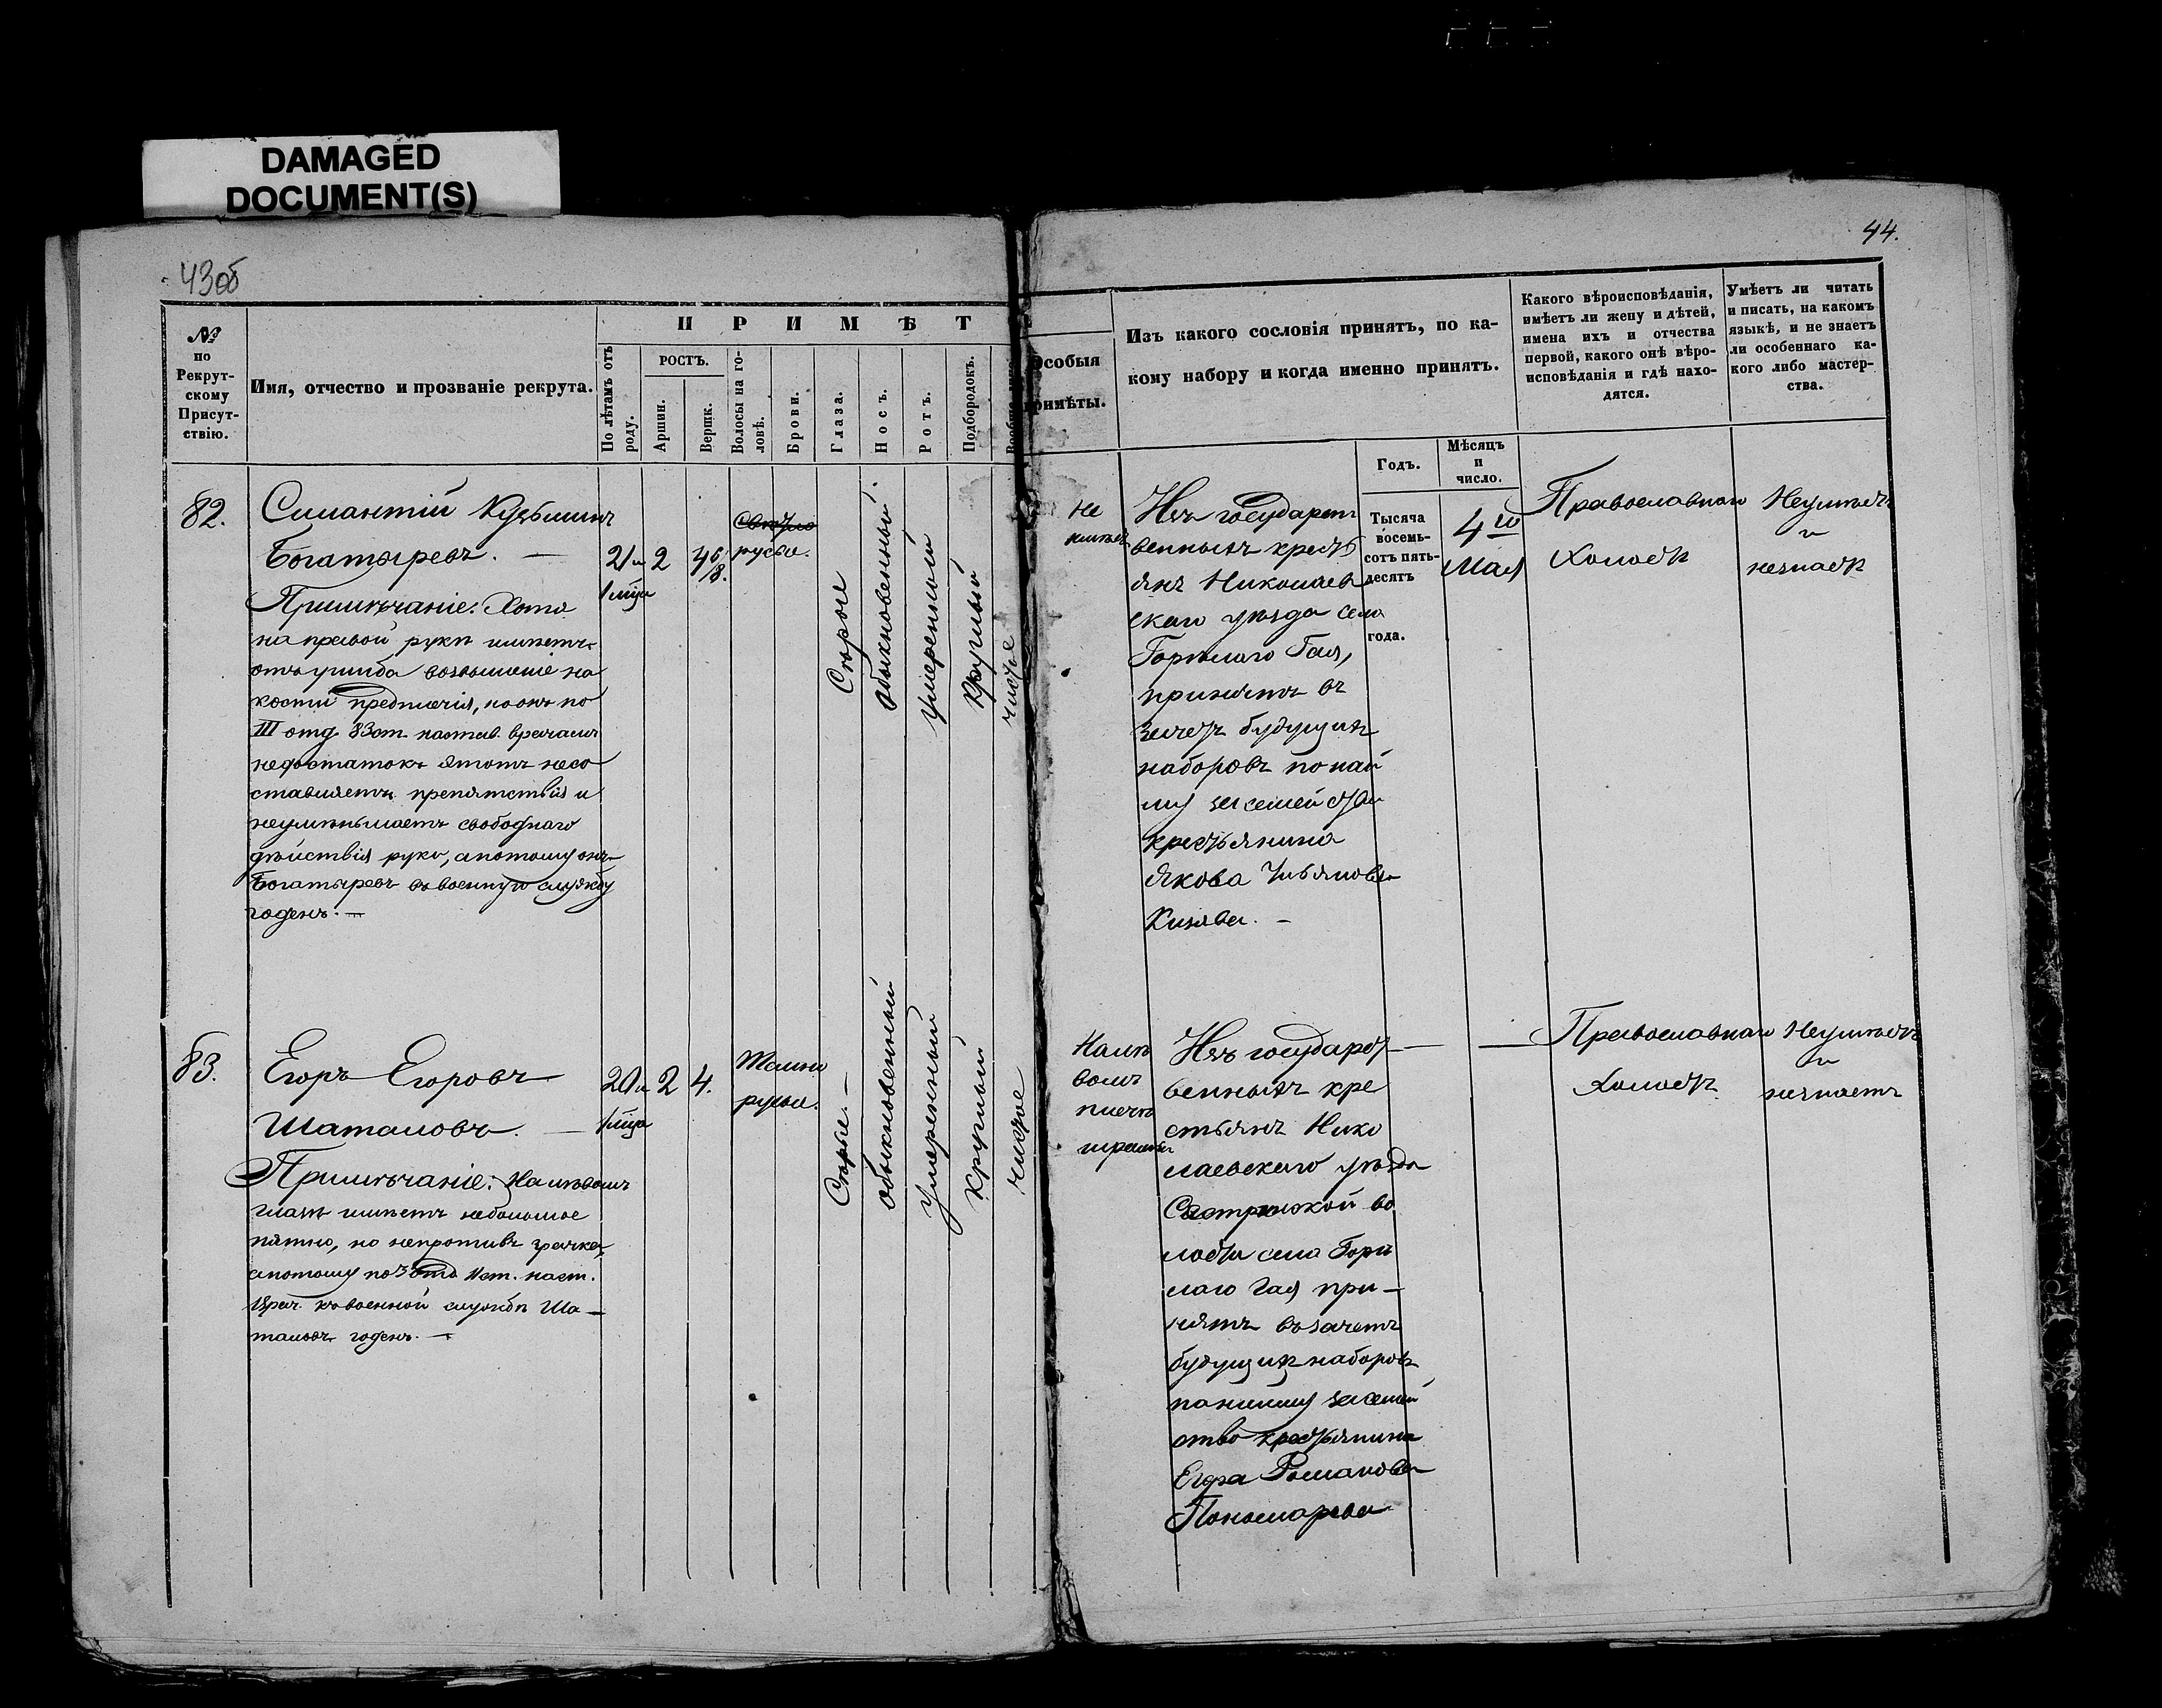 DAMAGED
DOCUMENT(S)
43об
44.
№
по
Рекрут-
скому
Присут-
ствію.
Имя, отчество и прозваніе рекрута.
ПРИМѢТ
По лѣтамъ отъ
роду.
РОСТЪ.
Аршин.
Вершк.
Волосы на го-
ловѣ.
Брови.
Глаза.
Носъ.
Ротъ.
Подбородокъ.
Особыя
примѣты.
Изъ какого сословія принятъ, по ка-
кому набору и когда именно принятъ.
Годъ.
Мѣсяцъ
и
число.
Какого вѣроисповѣданія,
имѣетъ ли жену и дѣтей,
имена ихъ и отчества
первой, какого онѣ вѣро-
исповѣданія и гдѣ нахо-
дятся.
Умѣетъ ли читать
и писать, на какомъ
языкѣ, и не знаетъ
ли особеннаго ка-
кого либо мастер-
ства.
82.
Кузьминъ
Богатыревъ. —
Примѣчаніе. Хотя
на правой рукѣ имѣетъ
отъ ушиба возвышеніе на
кости предплечія, но онъ по
III отд. 83 ст. настав. врачамъ
недостатокъ этотъ несо
ставляетъ препятствія и
неуменьшаетъ свободнаго
дѣйствія руки, а потому онъ
Богатыревъ въ военную службу
годенъ. —
21 и
1 мца
2
4 6/8.
русые.
Сѣрые
обыкновенный.
умеренный
Круглый
чистое
Не
имѣетъ
Изъ государст
венныхъ кресть
янъ Николаев
скаго уѣзда села
Горѣлаго Гая,
принятъ въ
зачетъ будущихъ
наборовъ по най
му за семейство
крестьянина
Якова
Тысяча
восемь-
сотъ пять-
десятъ
года.
4го
Мая
Православнаго
Холостъ
Неумѣетъ
и
незнаетъ
83.
Егоръ Егоровъ
Шаталовъ. —
Примѣчаніе: На лѣвомъ
глазѣ имѣетъ небольшое
пятно, но непротивъ зрачка,
а потому по 3 отд. 11 ст. наст.
врач. къ военной службѣ Ша—
таловъ годенъ. —
20 и
1 мца
2
4.
Темно
русые.
Сѣрые. —
обыкновенный
умеренный
круглый
чистое
На лѣ
вомъ
плечѣ
шрамъ
Изъ государст
венныхъ кре
стьянъ Нико
лаевскаго уѣзда
во
лости села Горѣ
лаго Гая при—
нятъ въ зачетъ
будущихъ наборовъ
по найму за семей
ство крестьянина
Егора Романова
Пономарева
— —
Православнаго
Холостъ.
Неумѣетъ
и
незнаетъ